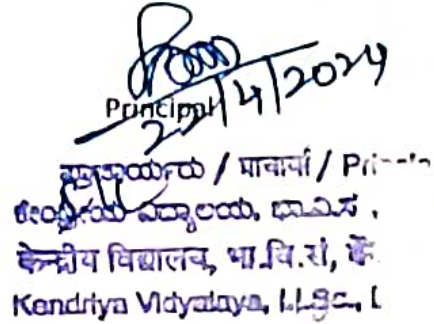 Principal
22/4/2024
ಪ್ರಾಚಾರ್ಯರು / प्राचार्या / Pri
ಕೇಂದ್ರೀಯ ವಿದ್ಯಾಲಯ, ಭಾ.ವಿ.ಸಂ,
केन्द्रीय विद्यालय, भा.वि.सं, बें
Kendriya Vidyalaya, I.I.Sc.,